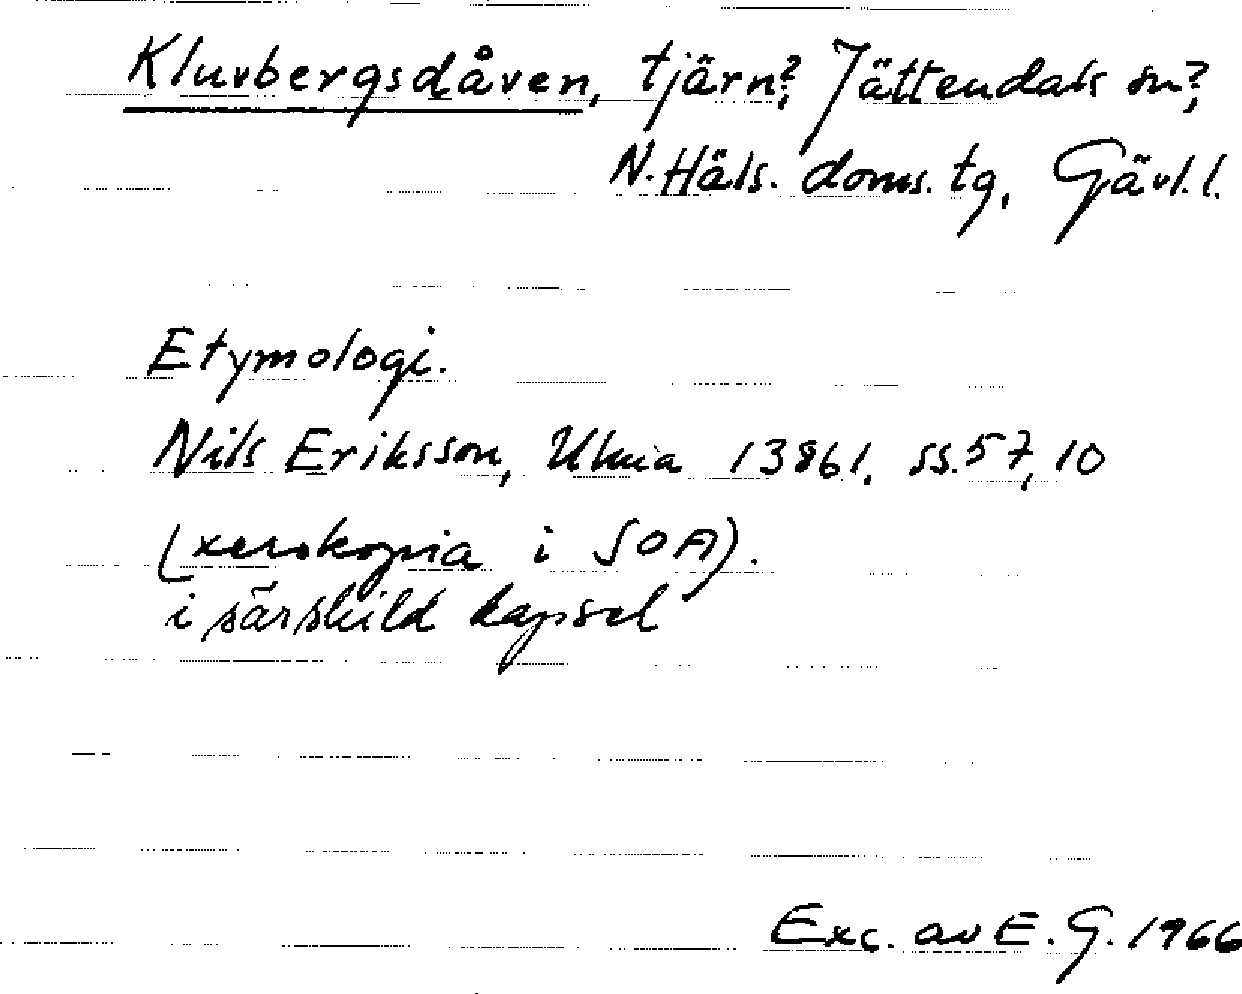 Kluvbergsdåven, tjärn?, Jättendals sn?,
N. Häls. doms. tg, Gävl. l.
Etymologi.
Nils Eriksson, Ulma 13861, ss. 57, 10
(xerokopia i SOA).
i särskild kapsel
Exc. av E. G. 1966